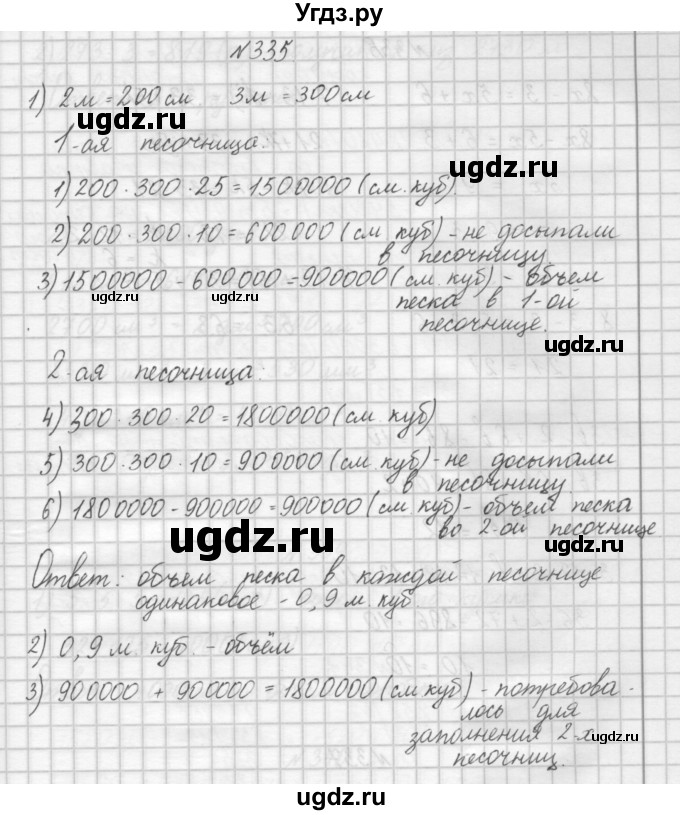 Угдз.ру
№335
1) 2м = 200см 3м = 300см
ugdz.ru
1-ая песочница:
ugdz.ru
ugdz.ru
1) 200 · 300 · 25 = 1500000 (см. куб)
2) 200 · 300 · 10 = 600 000 (см куб) - не досыпали
в песочницу
3) 1500000 - 600 000 = 900000 (см. куб) - объем
ugdz.ru ugdz.ru
песка в 1-ой
песочнице.
ugdz.ru
2-ая песочница:
4) 300 · 300 · 20 = 1800000 (см куб)
ugdz.ru
5) 300 · 300 · 10 = 900000 (см. куб) - не досыпали
в песочницу
6) 1800000 - 900000 = 900000 (см куб) - объем песка
во 2-ой песочнице
ugdz.ru
Ответ: объем песка в каждой песочнице
одинаковое - 0,9 м куб
2) 0,9 м. куб. - объём
ugdz.ru
3) 900000 + 900000 = 1800000 (см куб) - потребова-
лось для
заполнения 2-х
ugdz.ru
песочниц.
ugdz.ru
ugdz.ru